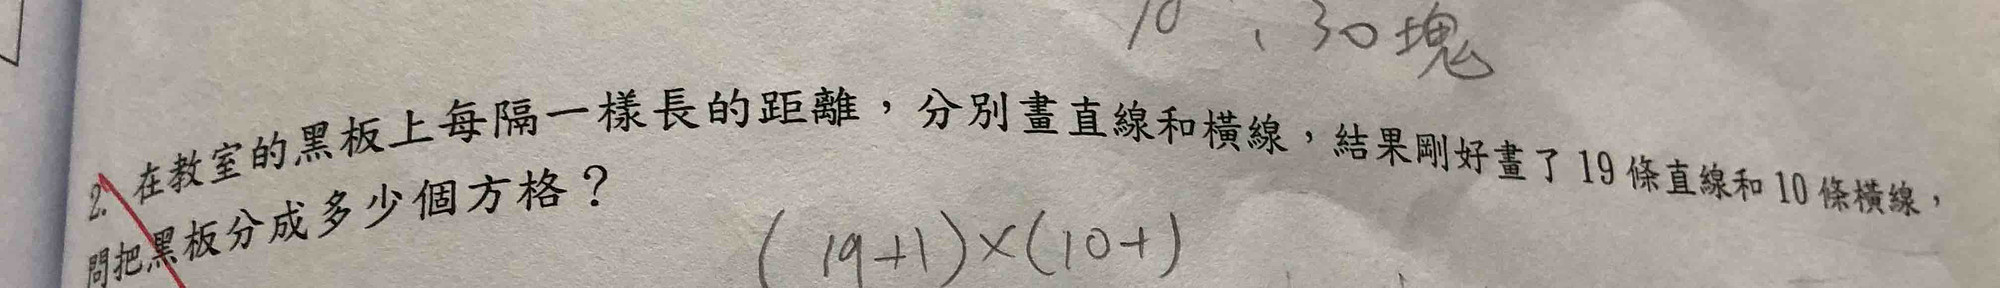 10、30塊
2. 在教室的黑板上每隔一樣長的距離，分別畫直線和橫線，結果剛好畫了19條直線和10條橫線，
問把黑板分成多少個方格？
(19+1)×(10+)